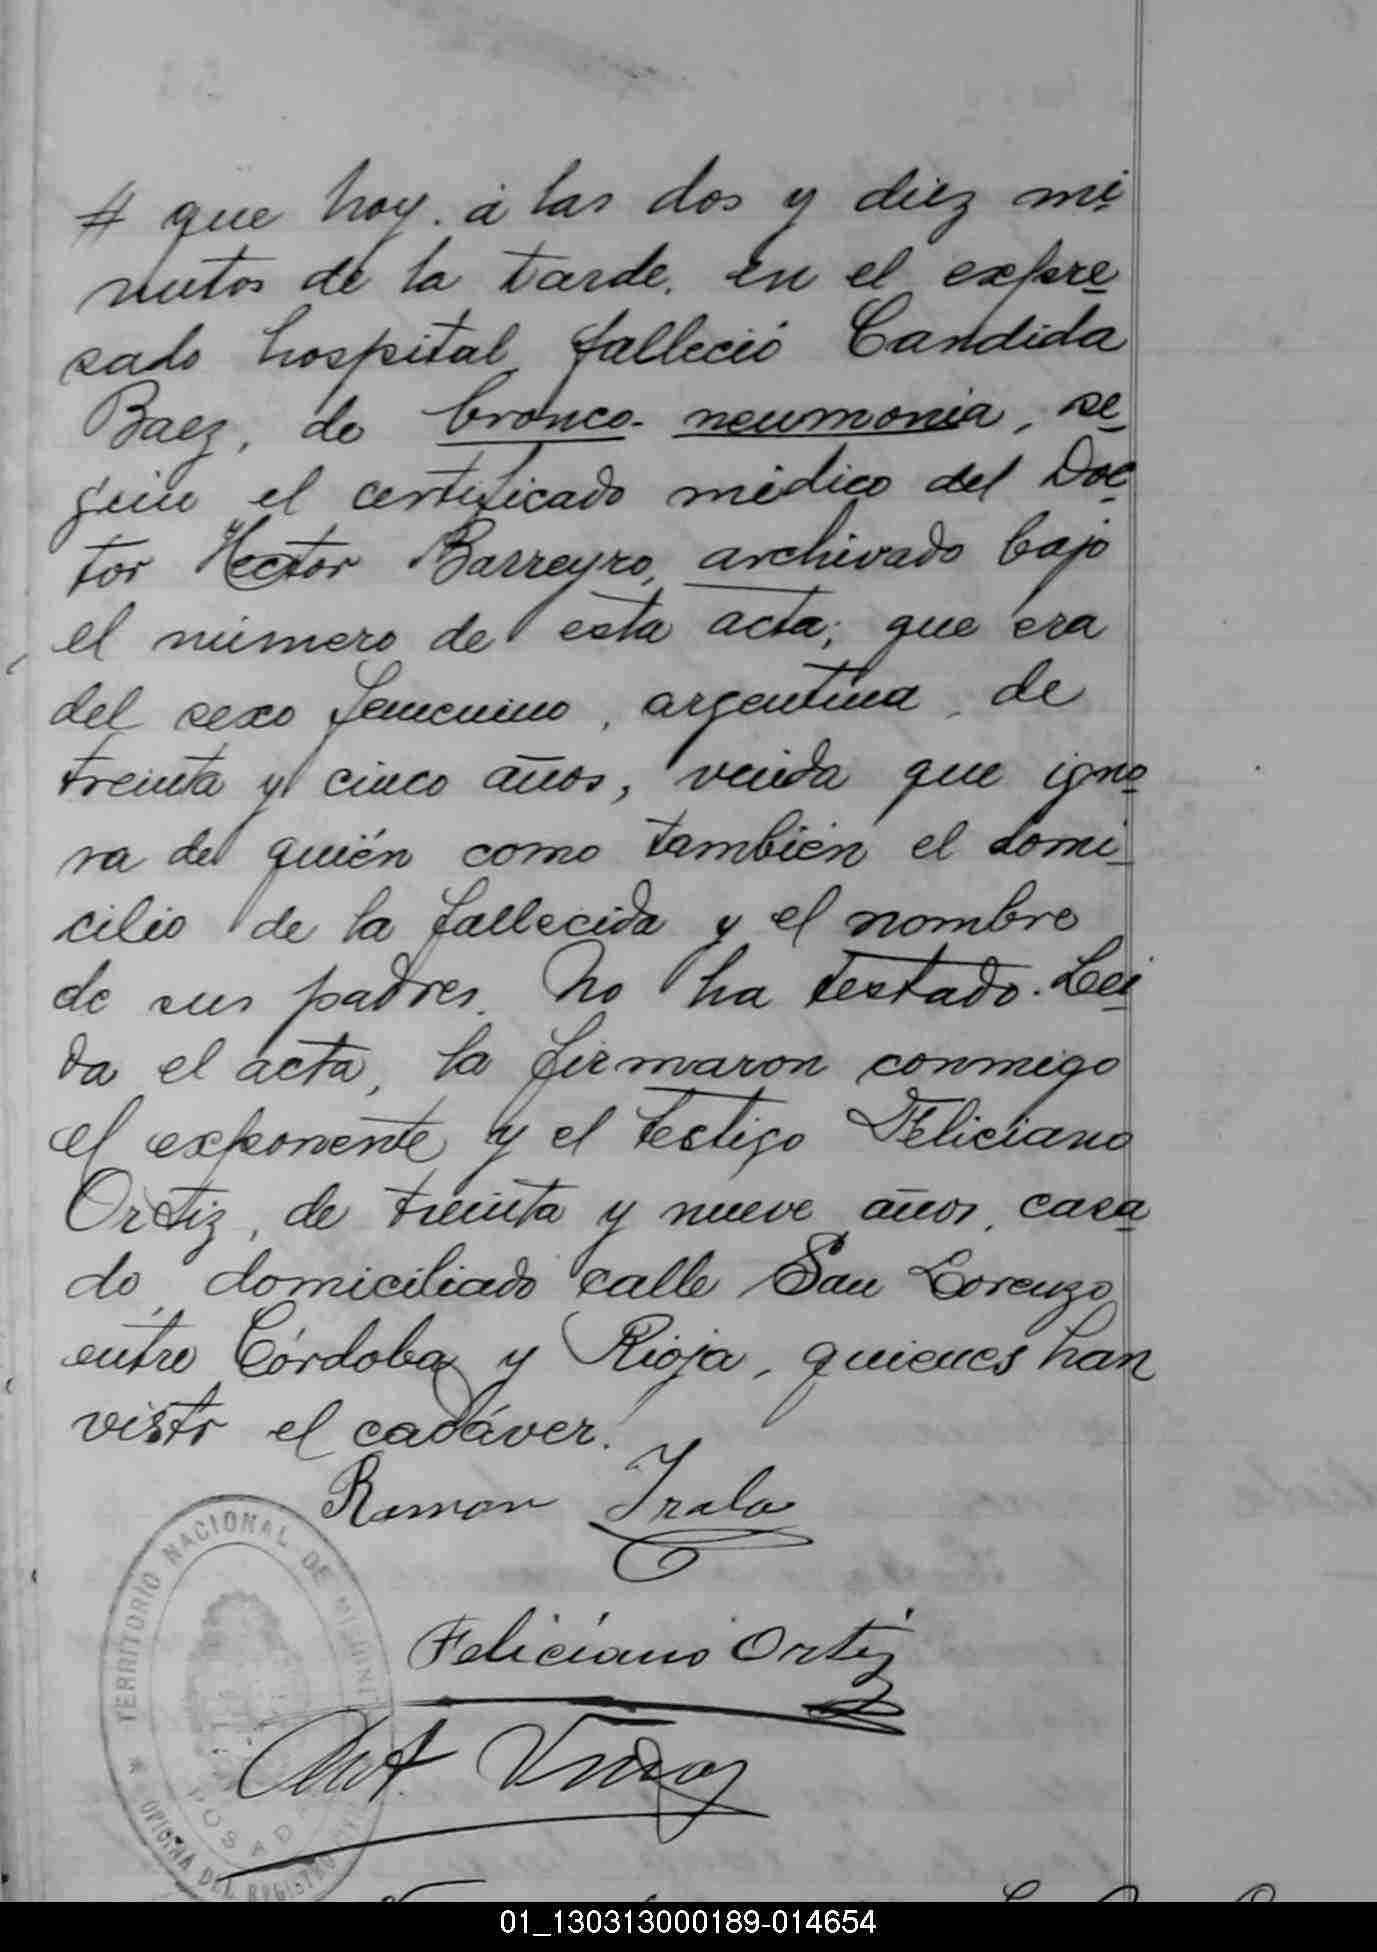 # que hoy. á las dos y diez mi
nutos de la tarde. en el expre
sado hospital falleció Candida
Baez, de bronco-neumonia, se
gún el certificado médico del Doc
tor Hector Barreyro, archivado bajo
el número de esta acta; que era
del sexo femenino, argentina, de
treinta y cinco años, viuda que igno
ra de quién como también el domi
cilio de la fallecida y el nombre
de sus padres. No ha testado. Lei
da el acta, la firmaron conmigo
el exponente y el testigo Feliciano
Ortiz, de treinta y nueve años, casa
do, domiciliado calle San Lorenzo
entre Córdoba y Rioja, quienes han
visto el cadáver.
Ramon Irala
TERRITORIO NACIONAL DE MISIONES
Feliciano Ortiz
POSADAS
OFICINA DEL REGISTRO
01_130313000189-014654